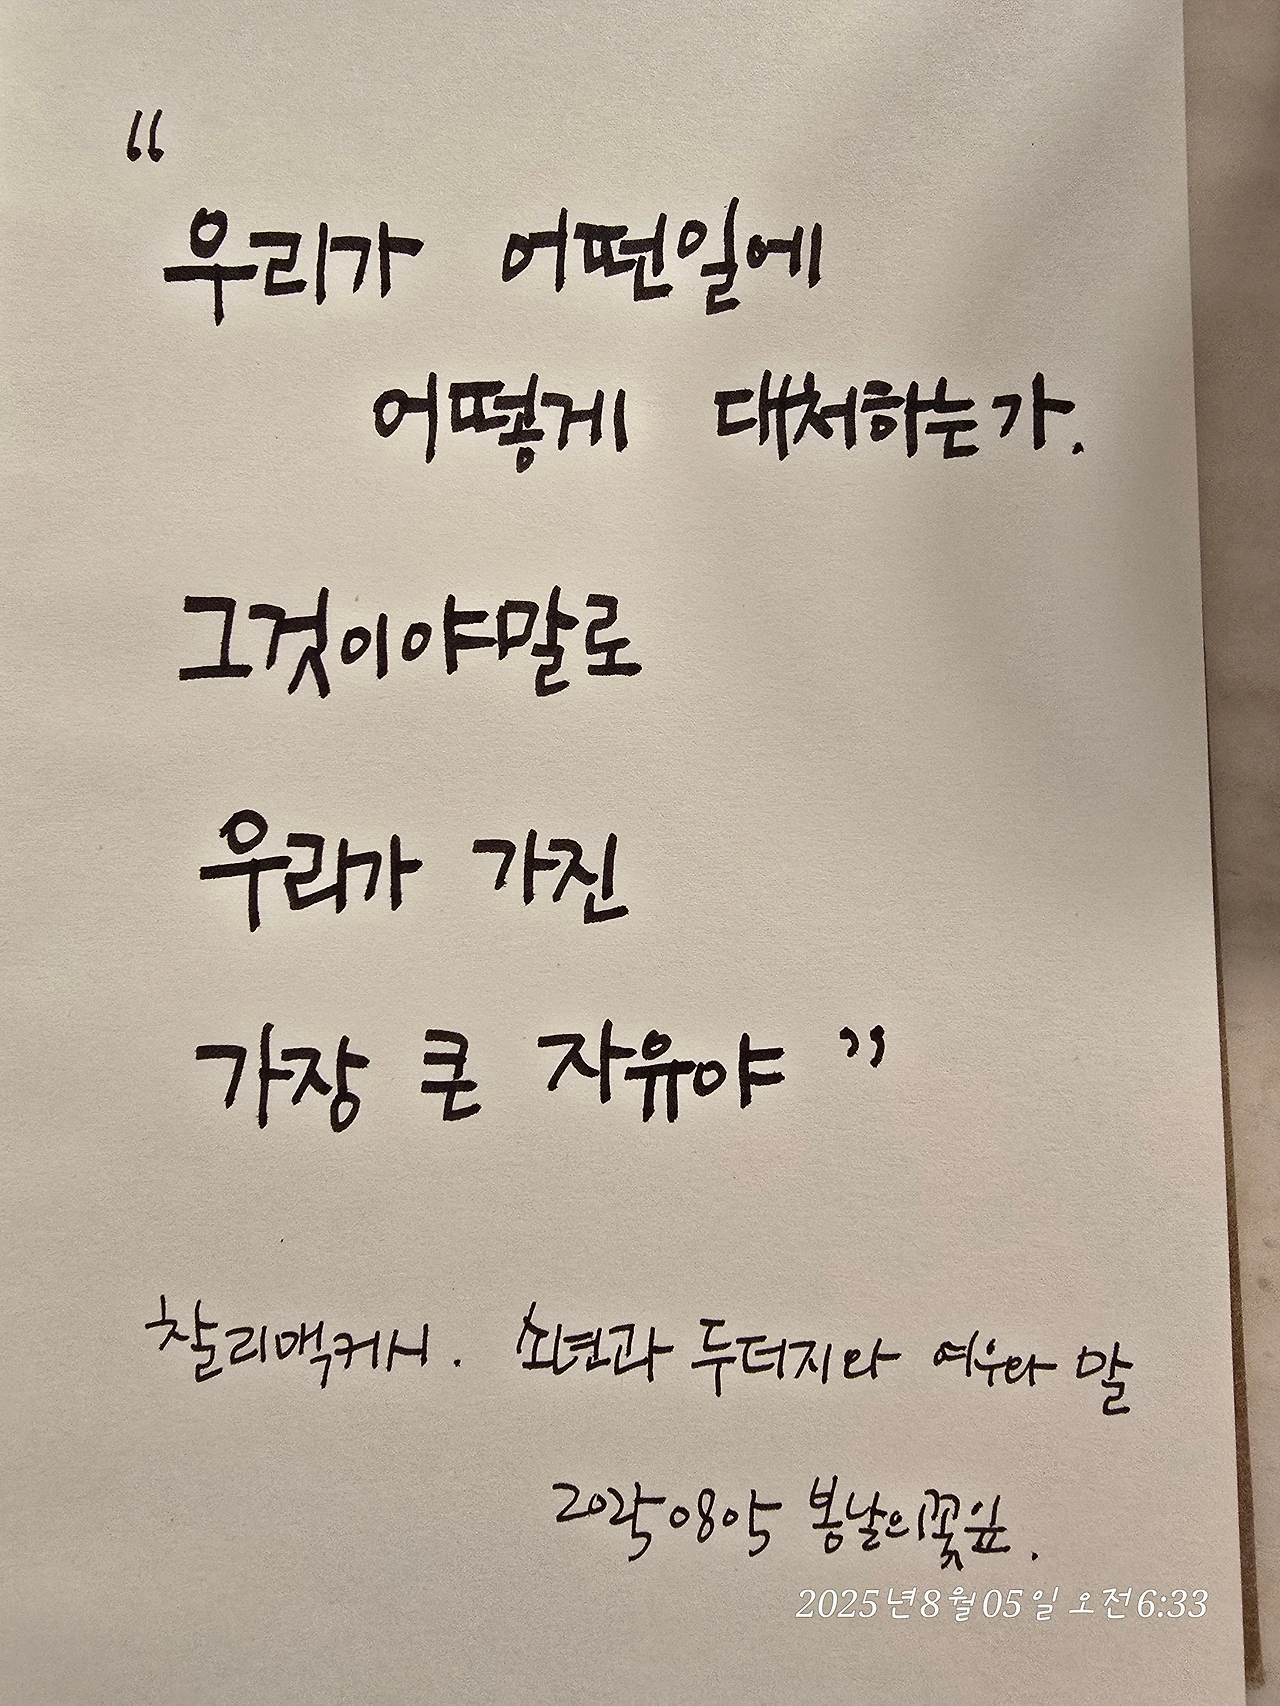 “
우리가 어떤일에
어떻게 대처하는가.
그것이야말로
우리가 가진
가장 큰 자유야 ”
찰리맥커시. 소년과 두더지와 여우와 말
20250805 봄날의꽃잎.
2025년8월05일 오전6:33